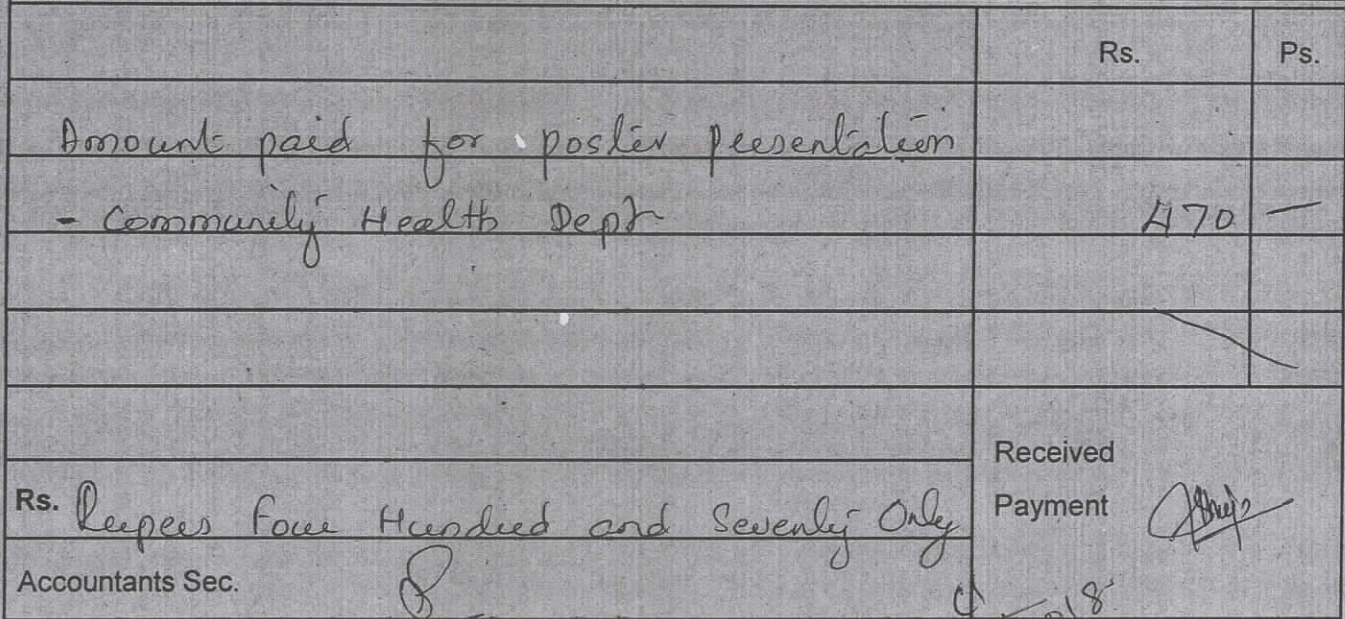 Rs. Ps.
Amount paid for poster presentation
- Community Health Dept 470 —
Received
Rs. Rupees Four Hundred and Seventy Only Payment
Accountants Sec.